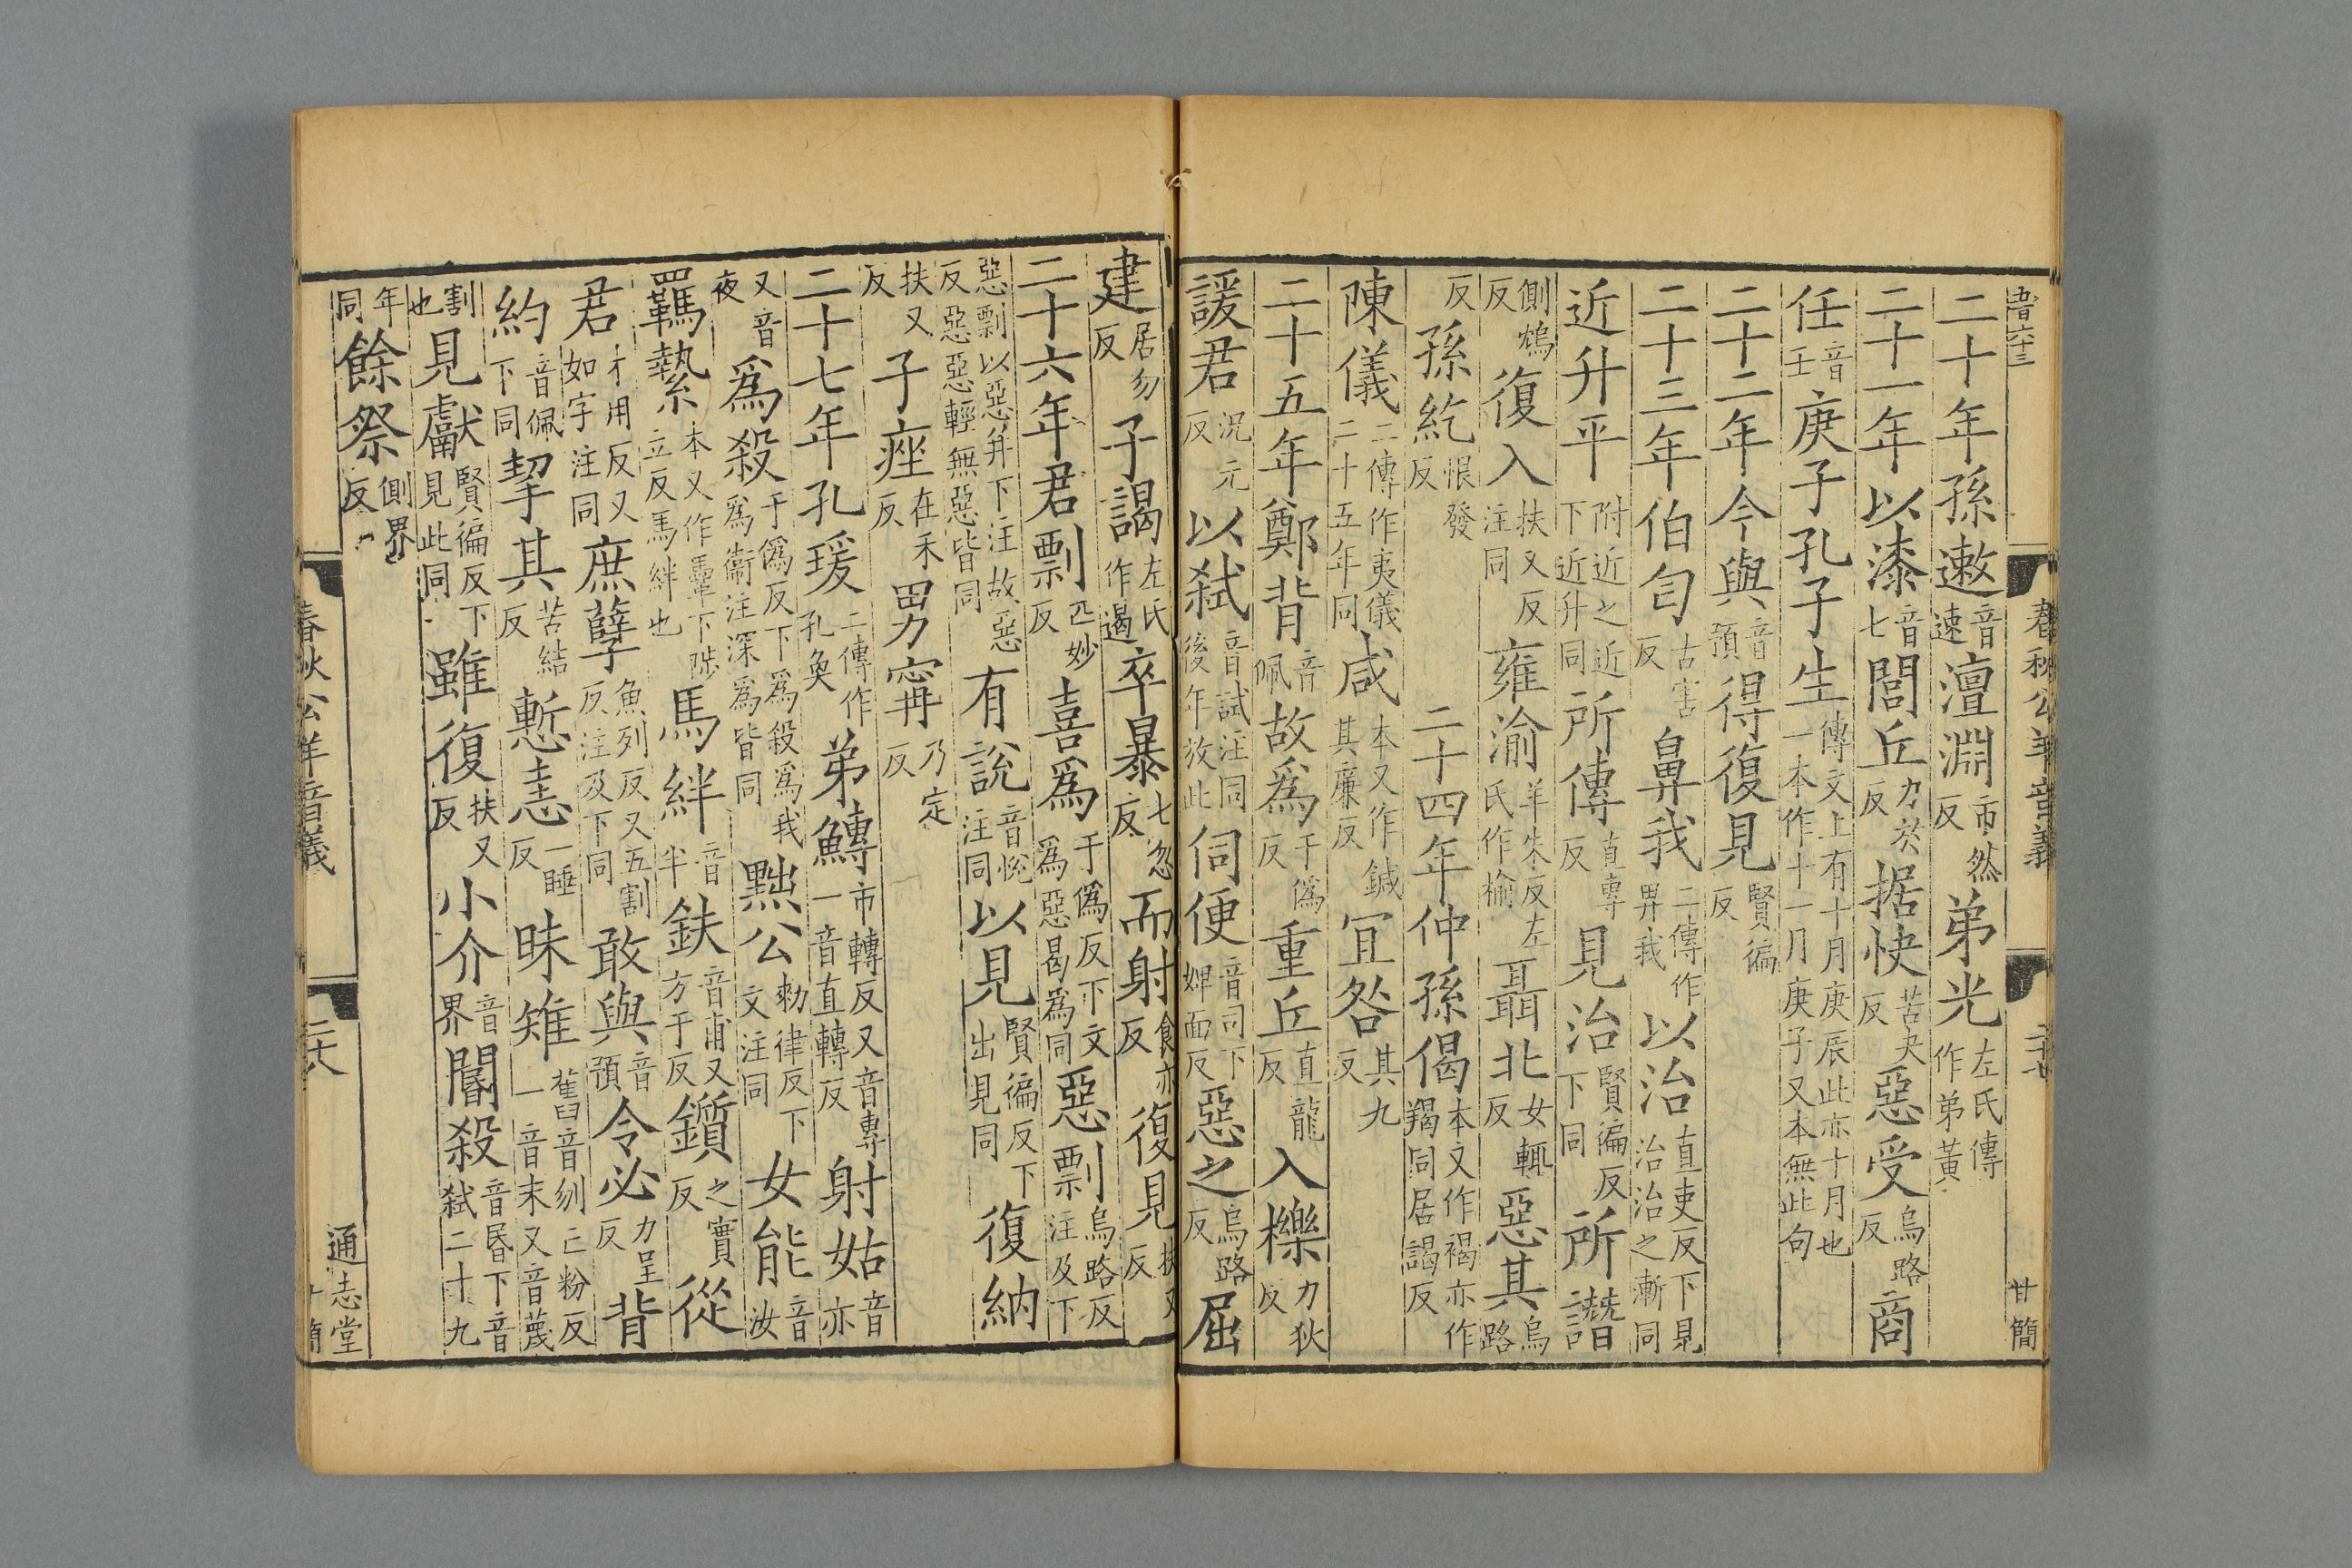 二十年孫遬音速澶淵市然反弟光左氏傳作弟黃
二十一年以漆音七閭丘力於反据快苦夬反惡受烏路反商
任音壬庚子孔子生傳文上有十月庚辰此亦十月也一本作十一月庚子又本無此句
二十二年今與音預得復見賢徧反
二十三年伯匄古害反鼻我二傳作畀我以治直吏反下見治治之漸同
近升平附近之近下近升同所傳直專反見治賢徧反下同所譖
側鴆反復入扶又反注同雍渝羊朱反左氏作榆聶北女輒反惡其烏路
反孫紇恨發反二十四年仲孫偈本又作褐亦作羯同居謁反
陳儀二傳作夷儀二十五年同咸本又作鍼其廉反宜咎其九反
二十五年鄭背音佩故爲于僞反重丘直龍反入櫟力狄反
諼君況元反以弑音試注同後年放此伺便音司下婢面反惡之烏路反屈
建居勿反子謁左氏作遏卒暴七忽反而射食亦反復見扶又反
二十六年君剽匹妙反喜爲于僞反下文爲惡曷爲同惡剽烏路反注及下
惡剽以惡并下注故惡反惡惡輕無惡皆同有說音悅注同以見賢徧反下出見同復納
扶又反子痤在禾反男甯乃定反
二十七年孔瑗二傳作孔奐弟鱄市轉反又音專一音直轉反射姑音亦
又音夜爲殺于僞反下爲殺爲我爲衞注深爲皆同黜公勑律反下文注同女能音汝
羈縶本又作馽下陟立反馬絆也馬絆音半鈇音甫又方于反鑕之實反從
君才用反又如字注同庶孽魚列反又五割反注及下同敢與音預令必力呈反背
約音佩下同挈其苦結反慙恚一睡反昧雉舊音刎亡粉反一音末又音蔑
割也見獻賢徧反下見此同雖復扶又反小介音界閽殺音昬下音弑二十九
年同餘祭側界反
春秋公羊音義
二十八
通志堂